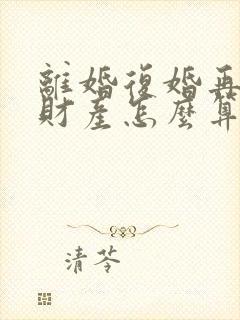 離婚復婚再
財產怎麼算
清苓